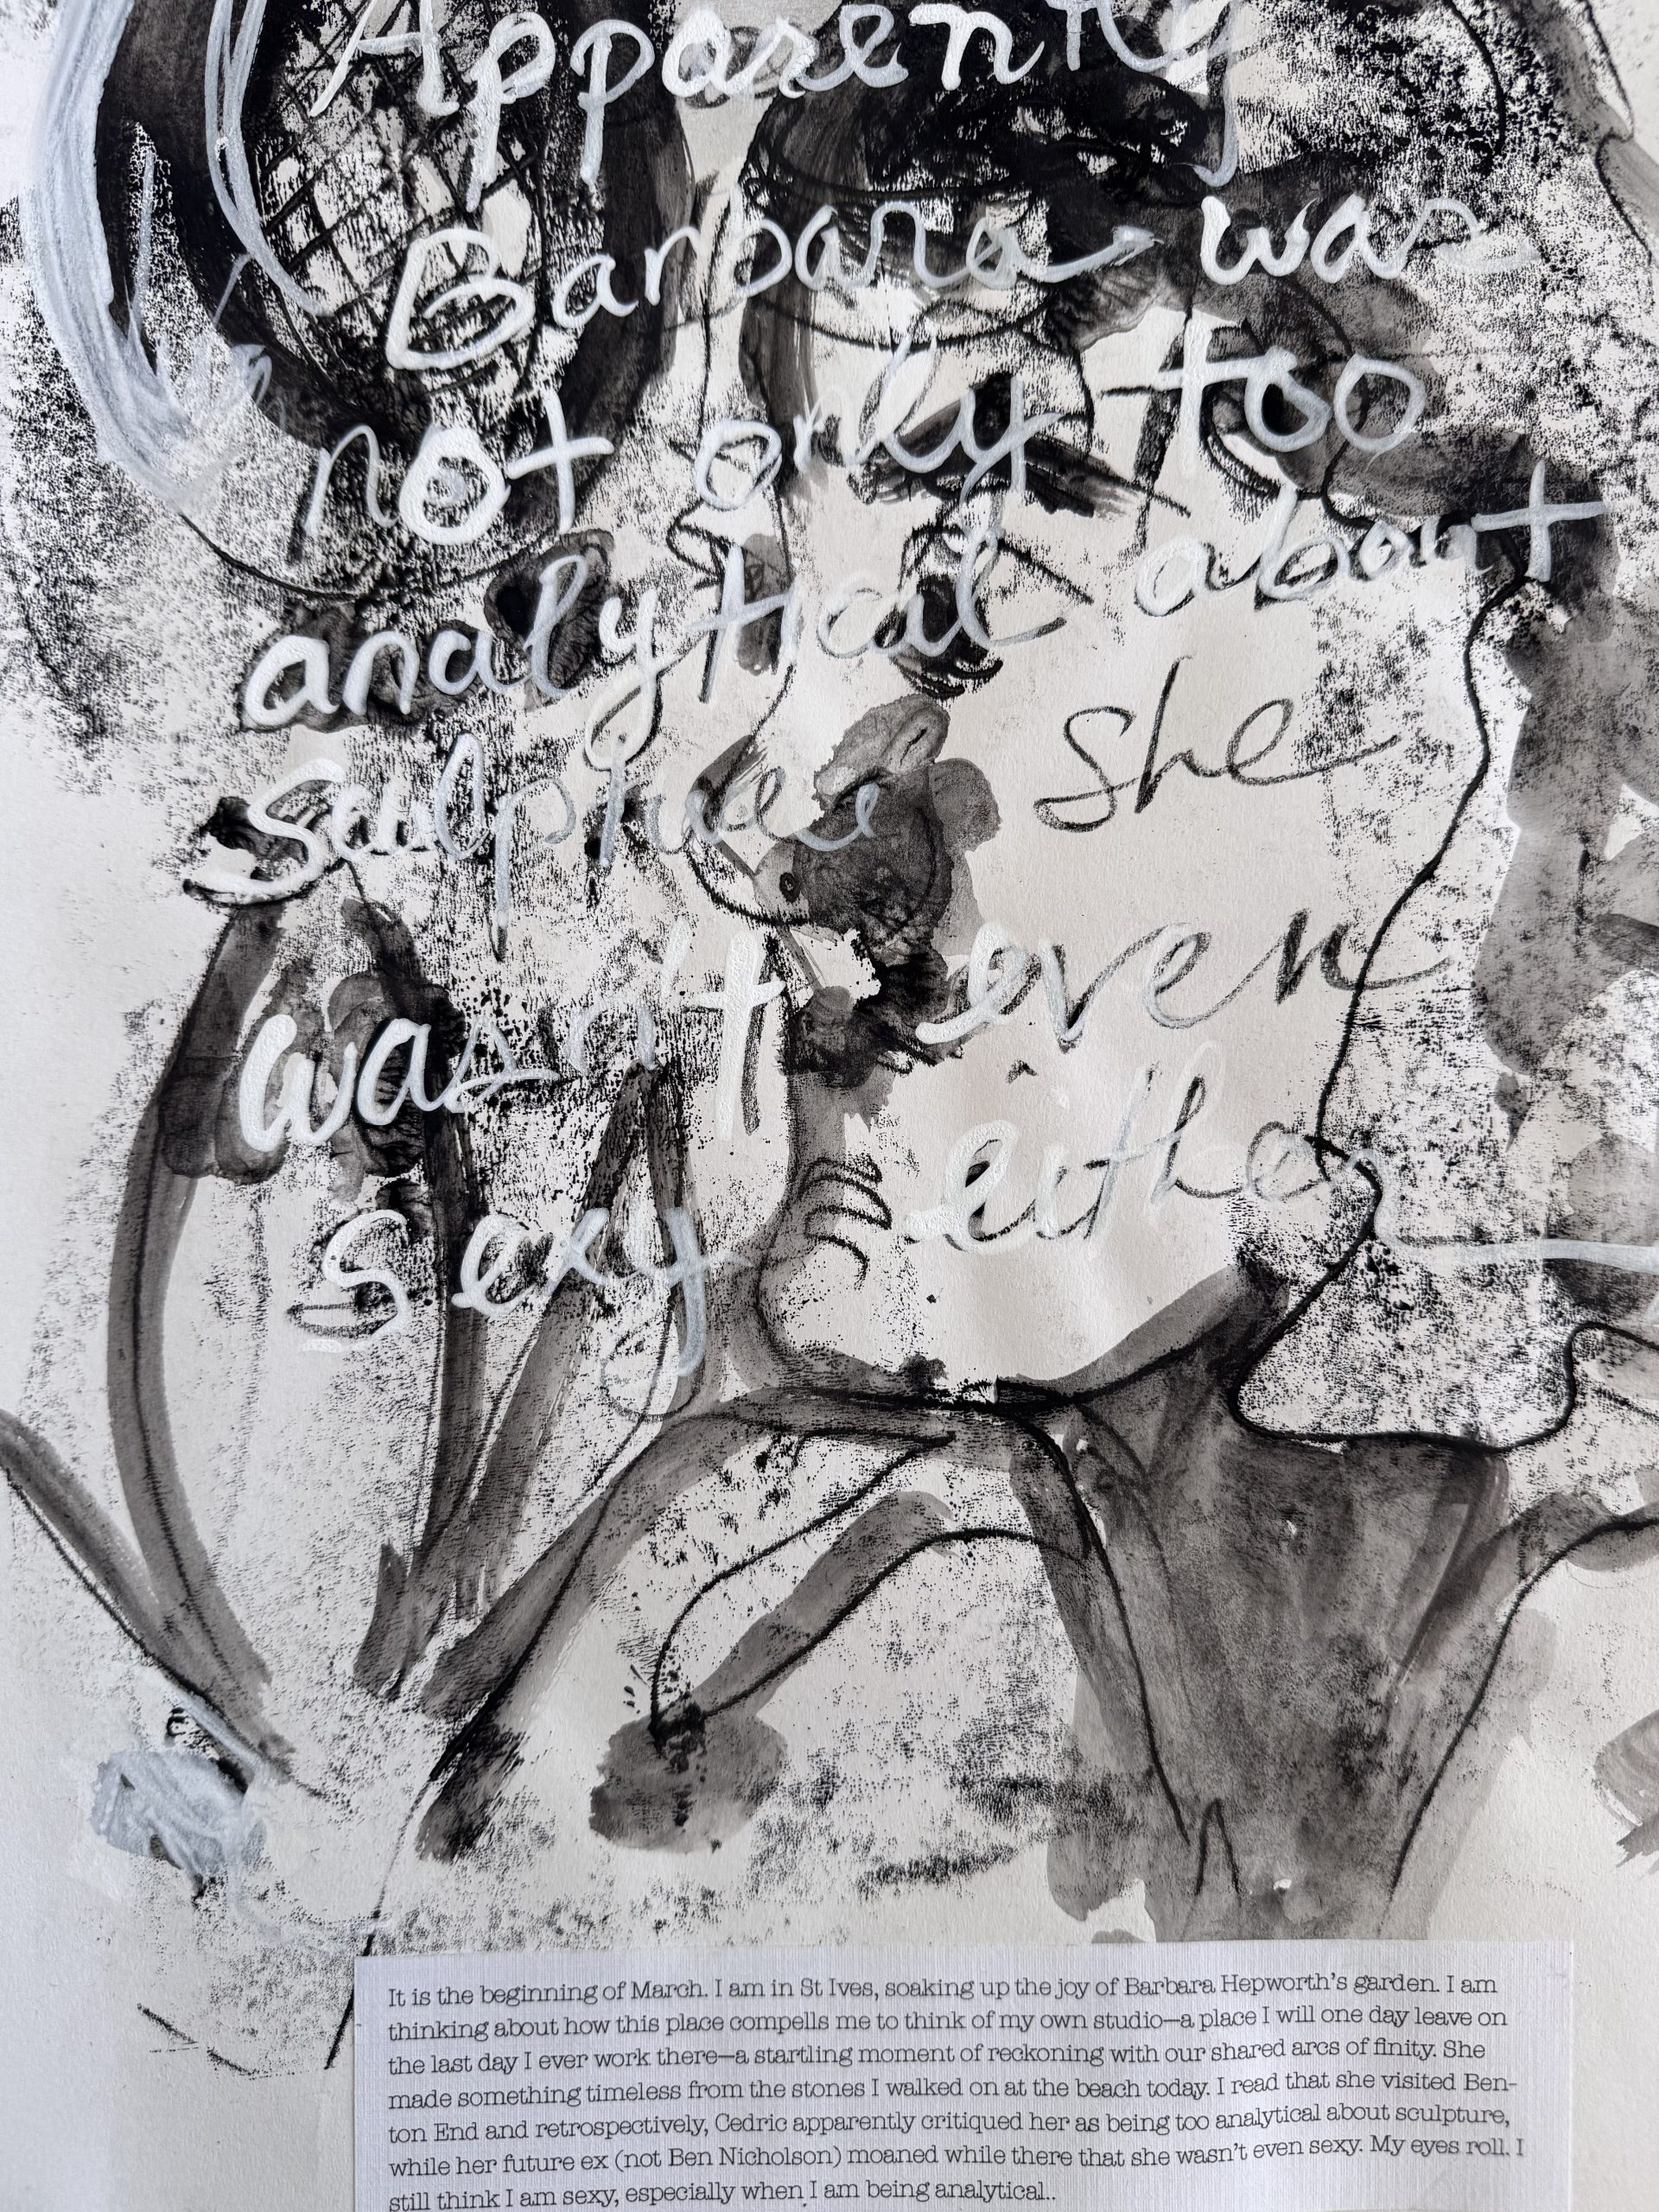 Apparently
Barbara was
not only too
analytical about
sculpture she
wasn't even
sexy either
It is the beginning of March. I am in St Ives, soaking up the joy of Barbara Hepworth's garden. I am
thinking about how this place compells me to think of my own studio—a place I will one day leave on
the last day I ever work there—a startling moment of reckoning with our shared arcs of finity. She
made something timeless from the stones I walked on at the beach today. I read that she visited Ben-
ton End and retrospectively, Cedric apparently critiqued her as being too analytical about sculpture,
while her future ex (not Ben Nicholson) moaned while there that she wasn't even sexy. My eyes roll. I
still think I am sexy, especially when I am being analytical..